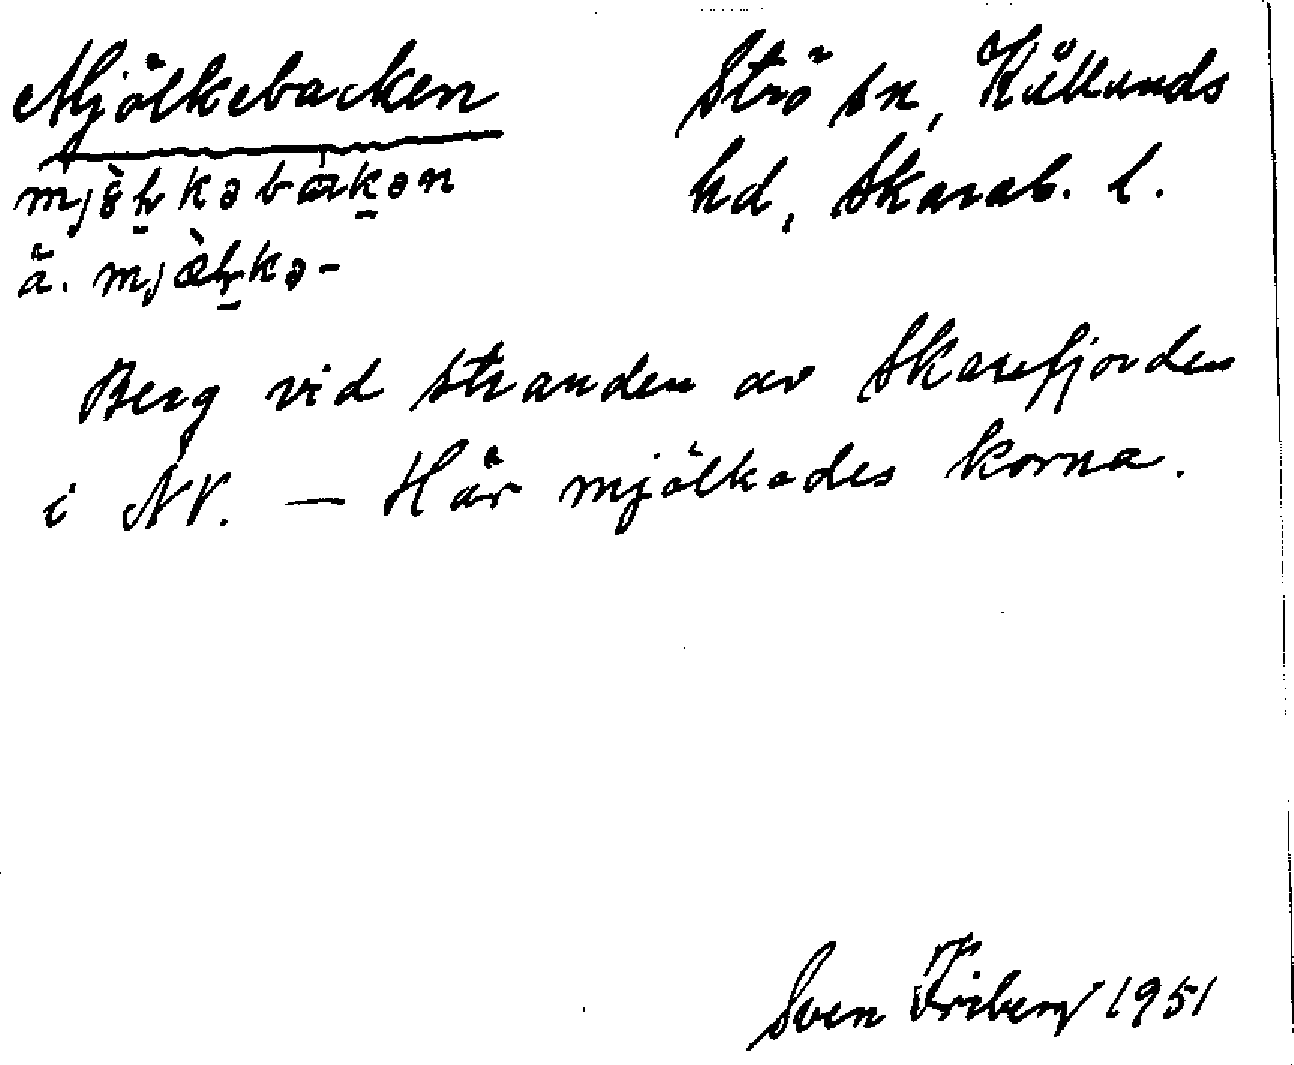 Mjölkebacken
Strö sn, Kållands
hd, Skarab. l.
ä.
Berg vid stranden av Skarefjorden
i NV. — Här mjölkades korna.
Sven Friberg 1951